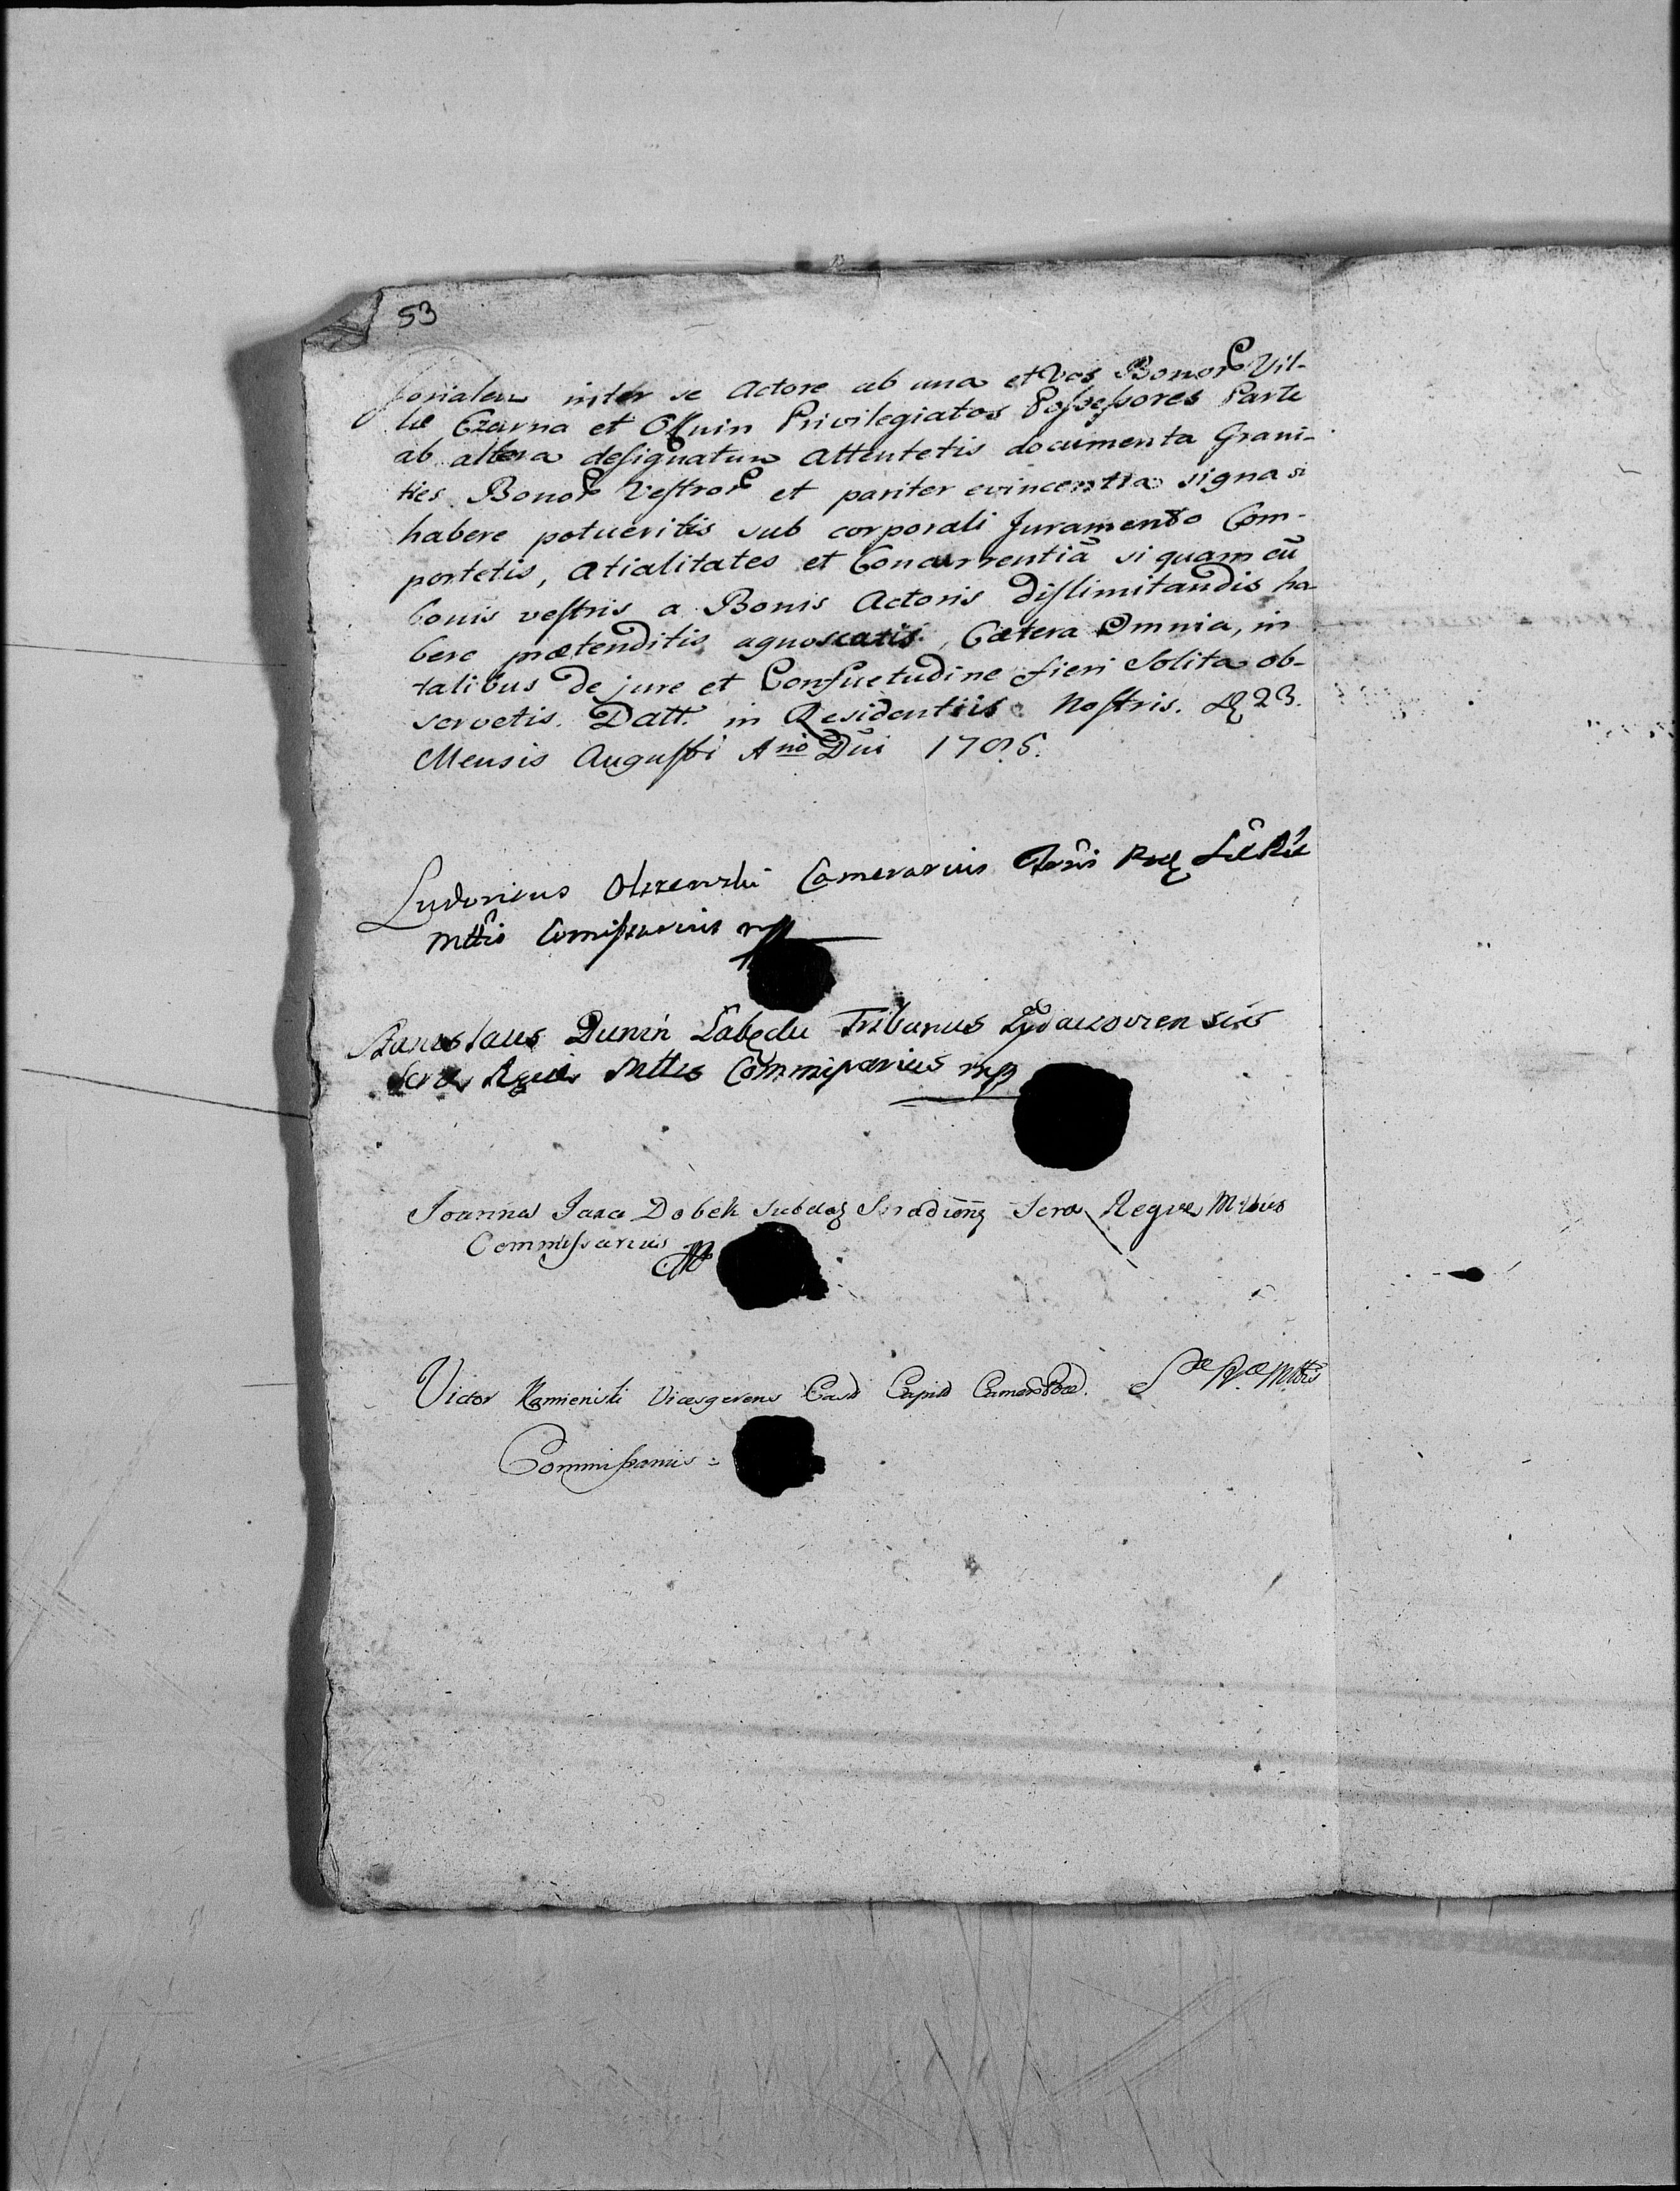 53
sorialem inter se Actore ab una et Vos Bonor Vil-
læ Czarna et Ossuin Privilegiatos Possessores Parte
ab altera designatum Attentetis documenta Grani-
ties Bonor Vestror et pariter evincentia signa si
habere potueritis sub corporali Juramento Com-
portetis, Atialitates et Concurrentiā si quam cū
bonis vestris a Bonis Actoris dislimitandis ha-
bere prætenditis agnoscatis, Cætera Omnia, in
talibus de jure et Consuetudine fieri Solita ob-
servetis. Datt. in Residentiis Nostris. D 23.
Mensis Augusti Anō Dni
Camerarius
Mttis Comissarius mp
Stanislaus Dunin Łabęcki Tribunus Żydaczoviensis
Scræ Rgiæ Mttis Commissarius mp
Joannes Jaxa Dobek Scræ Regiæ Mttis
Commissarius mp
Victor Kamienski Vicesgerens Cast Capit S R Mttis
Commissarius